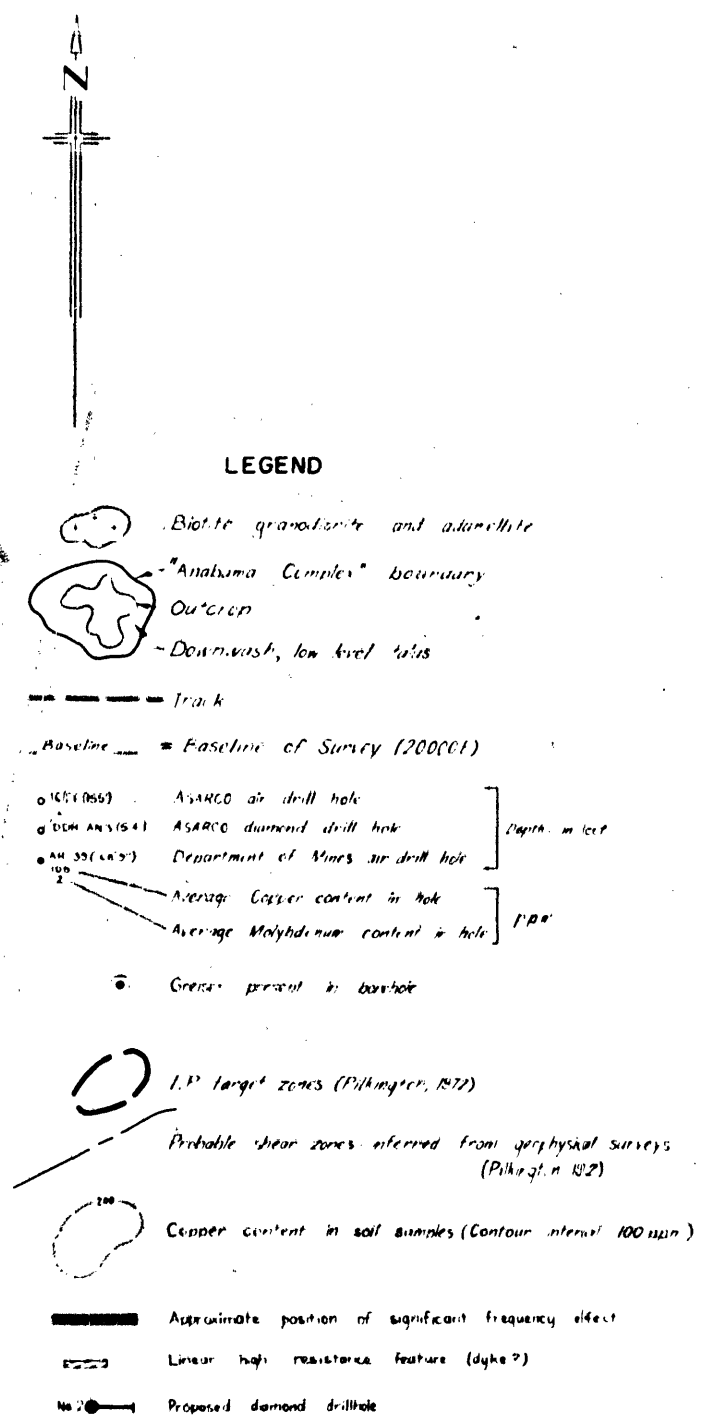 N
LEGEND
Biotite granodiorite and adamellite
"Anabama Complex" boundary
Outcrop
Downwash, low level talus
Track
Baseline = Baseline of Survey (20000E)
ASARCO air drill hole
DDH AN3 (54) ASARCO diamond drill hole
Depth in feet
AH 39 Department of Mines air drill hole
106
2
Average Copper content in hole
Average Molybdenum content in hole
ppm
Greisen present in borehole
I.P. target zones (Pilkington, 1972)
Probable shear zones inferred from geophysical surveys
(Pilkington 1972)
200
Copper content in soil samples (Contour interval 100 ppm)
Approximate position of significant frequency effect
Linear high resistance feature (dyke?)
No 2 Proposed diamond drillhole